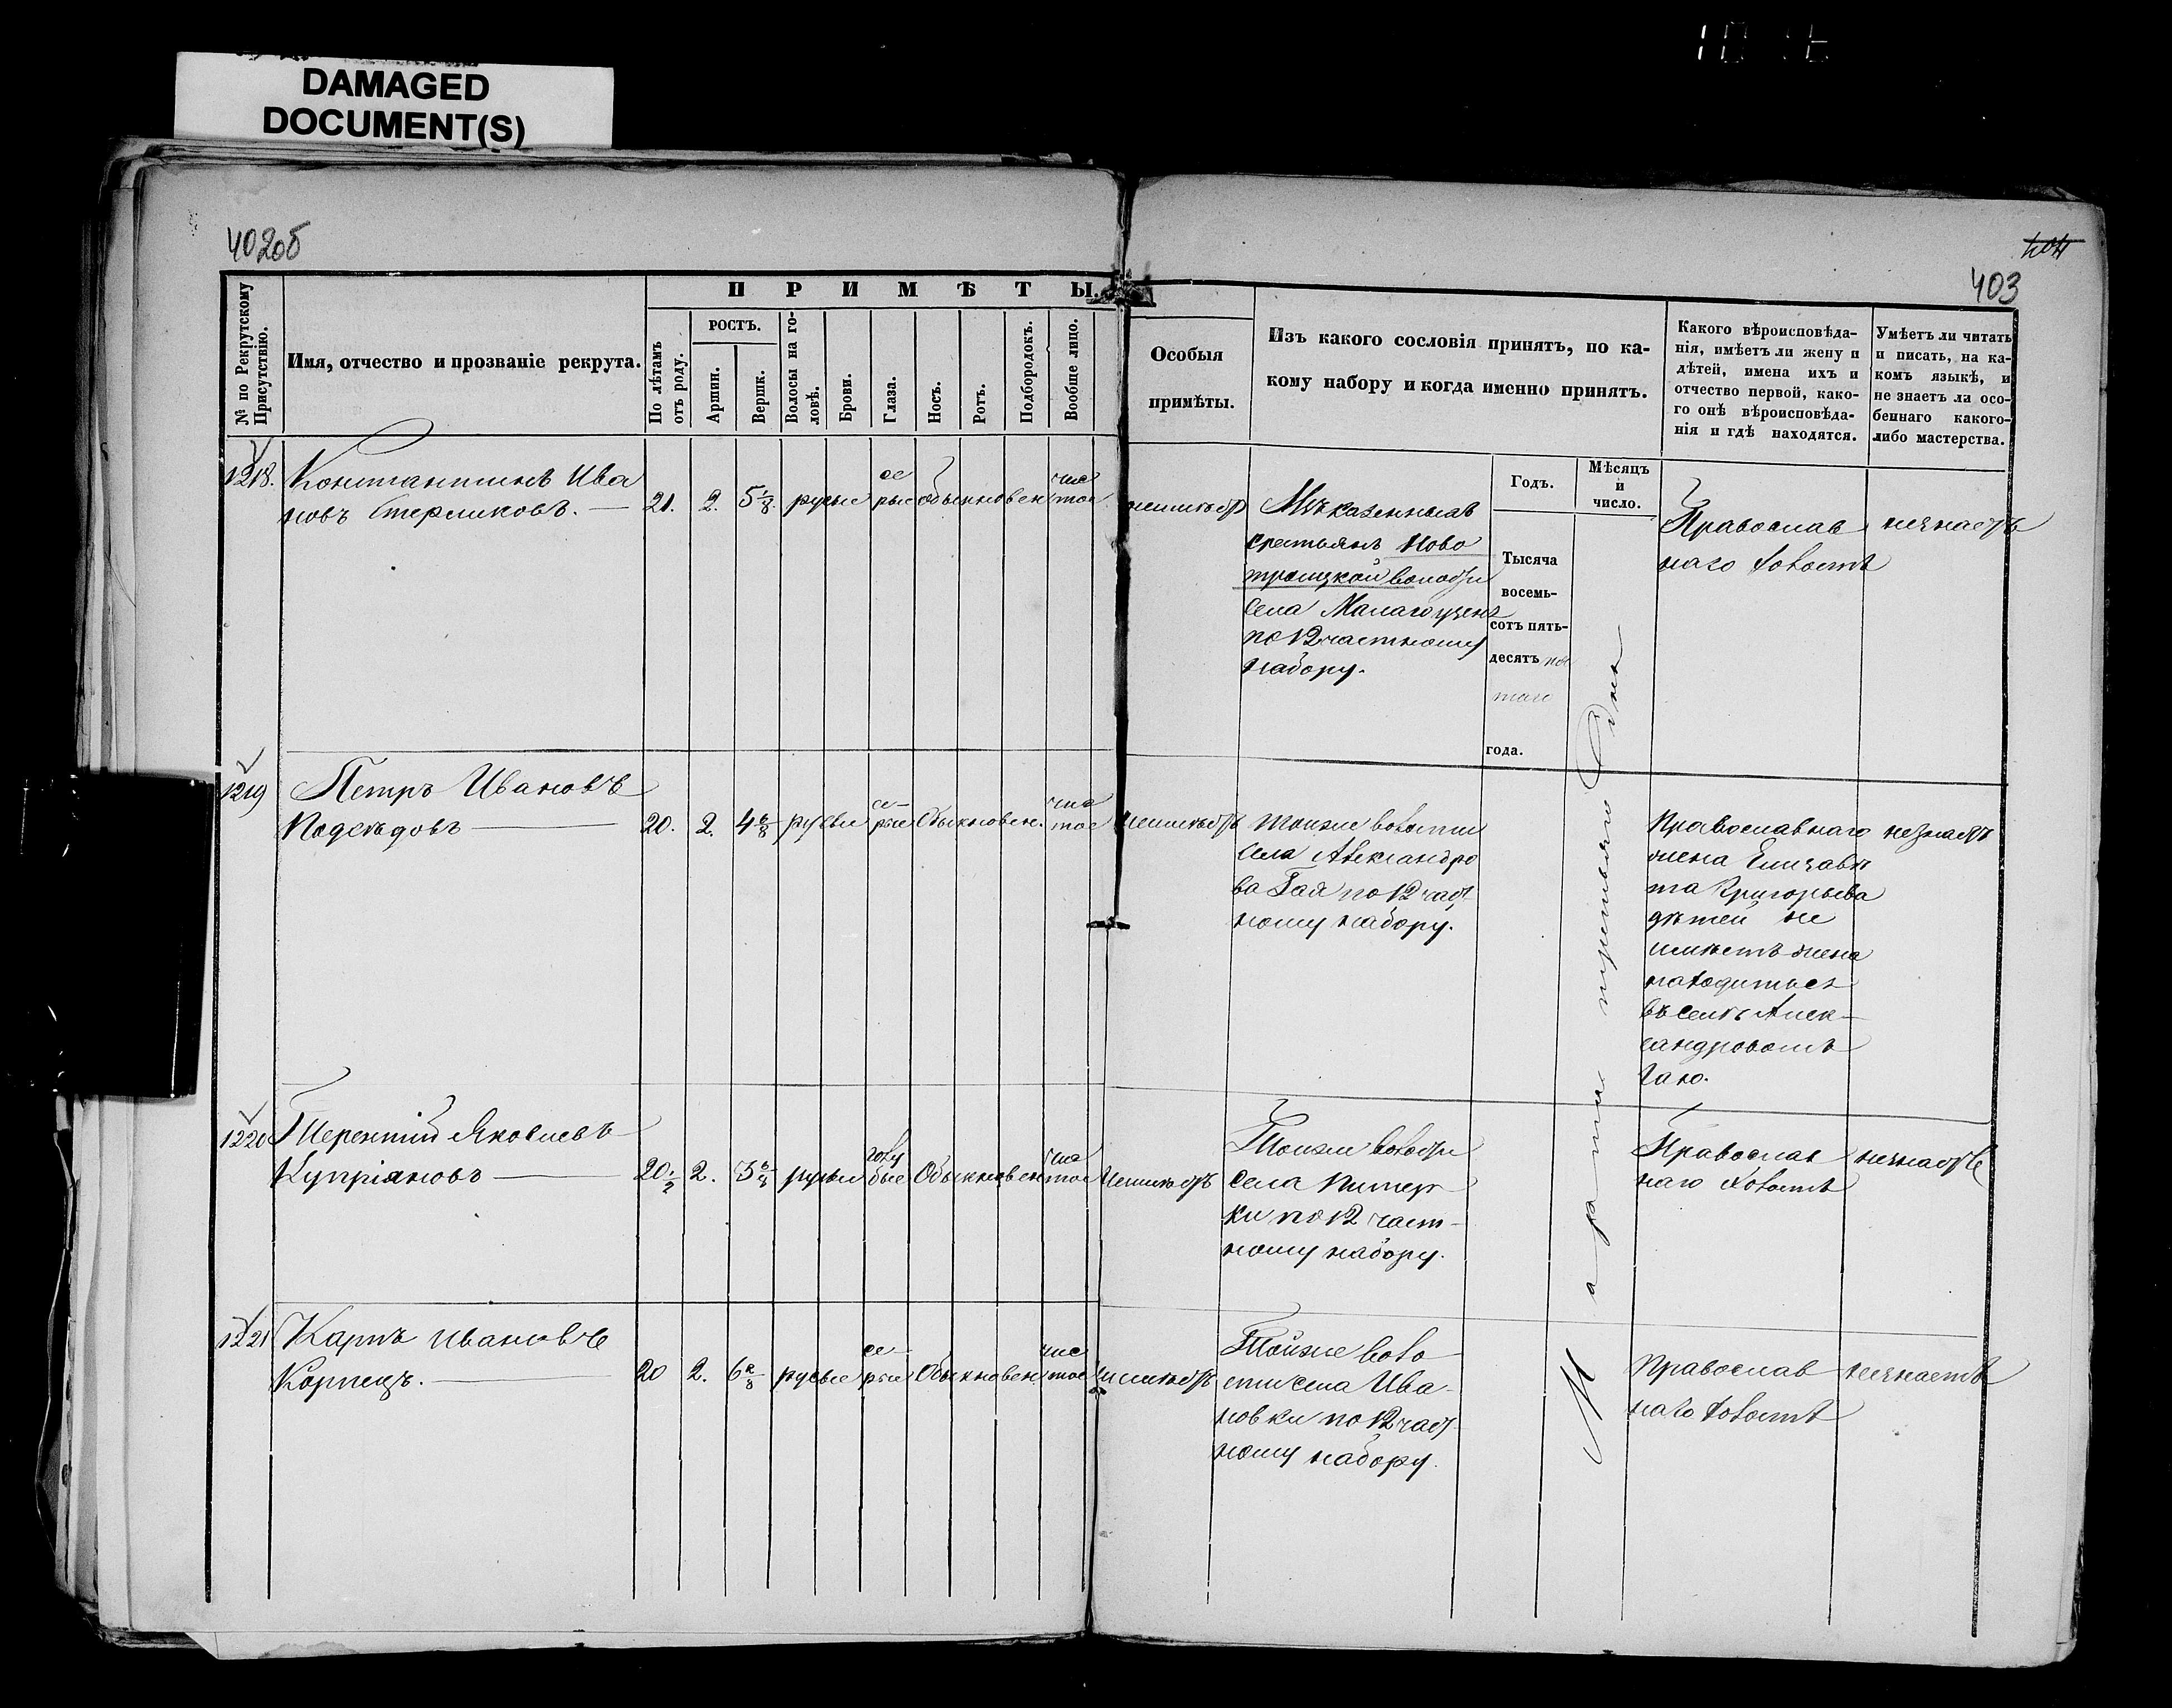 DAMAGED
DOCUMENT(S)
402об
404
403
№ по Рекрутскому
Присутствію.
Имя, отчество и прозваніе рекрута.
ПРИМѢТЫ.
По лѣтамъ
отъ роду.
РОСТЪ.
Аршин.
Вершк.
Волосы на го-
ловѣ.
Брови.
Глаза.
Носъ.
Ротъ.
Подбородокъ.
Вообще лицо.
Особыя
примѣты.
Изъ какого сословія принятъ, по ка-
кому набору и когда именно принятъ.
Какого вѣроисповѣда-
нія, имѣетъ ли жену и
дѣтей, имена ихъ и
отчество первой, како-
го онѣ вѣроисповѣда-
нія и гдѣ находятся.
Умѣетъ ли читать
и писать, на ка-
комъ языкѣ, и
не знаетъ ли осо-
беннаго какого-
либо мастерства.
Годъ.
Мѣсяцъ
и
число.
Тысяча
восемь-
сотъ пять-
десятъ пя
таго
года.
Марта третьяго дня
1218. Константинъ Ива
новъ Стерликовъ. — 21. 2. 5 1/8. русые се
рые обыкновен чис
тое неимѣетъ
Изъ казенныхъ
крестьянъ Ново
троицкой волости
села Малагоузеня
по 12 частному
набору.
Православ
наго холостъ
незнаетъ
1219 Петръ Ивановъ
Подсѣдовъ — 20. 2. 4 6/8 русые се-
рые Обыкновен. чис
тое неимѣетъ
тойже волости
села Александро
ва Гая по 12 част-
ному набору.
Православнаго
жена Елизаве
та Григорьева
дѣтей не
имѣетъ жена
находиться
въ селѣ Алек-
сандровомъ
Гаю.
незнаетъ
1220 Терентій Яковлевъ
Купріяновъ — 20 1/2 2. русые голу
бые Обыкновен чис
тое Неимѣетъ
Тойже волости
села Питер-
ки по 12 част-
ному набору.
Православ
наго холостъ
незнаетъ
1221 Карпъ Ивановъ
Корпецъ. — 20 2. русые се-
рые Обыкновен чис
тое Неимѣетъ
Тойже воло-
сти села Ива-
новки по 12 част
ному набору.
Православ-
наго холостъ
незнаетъ